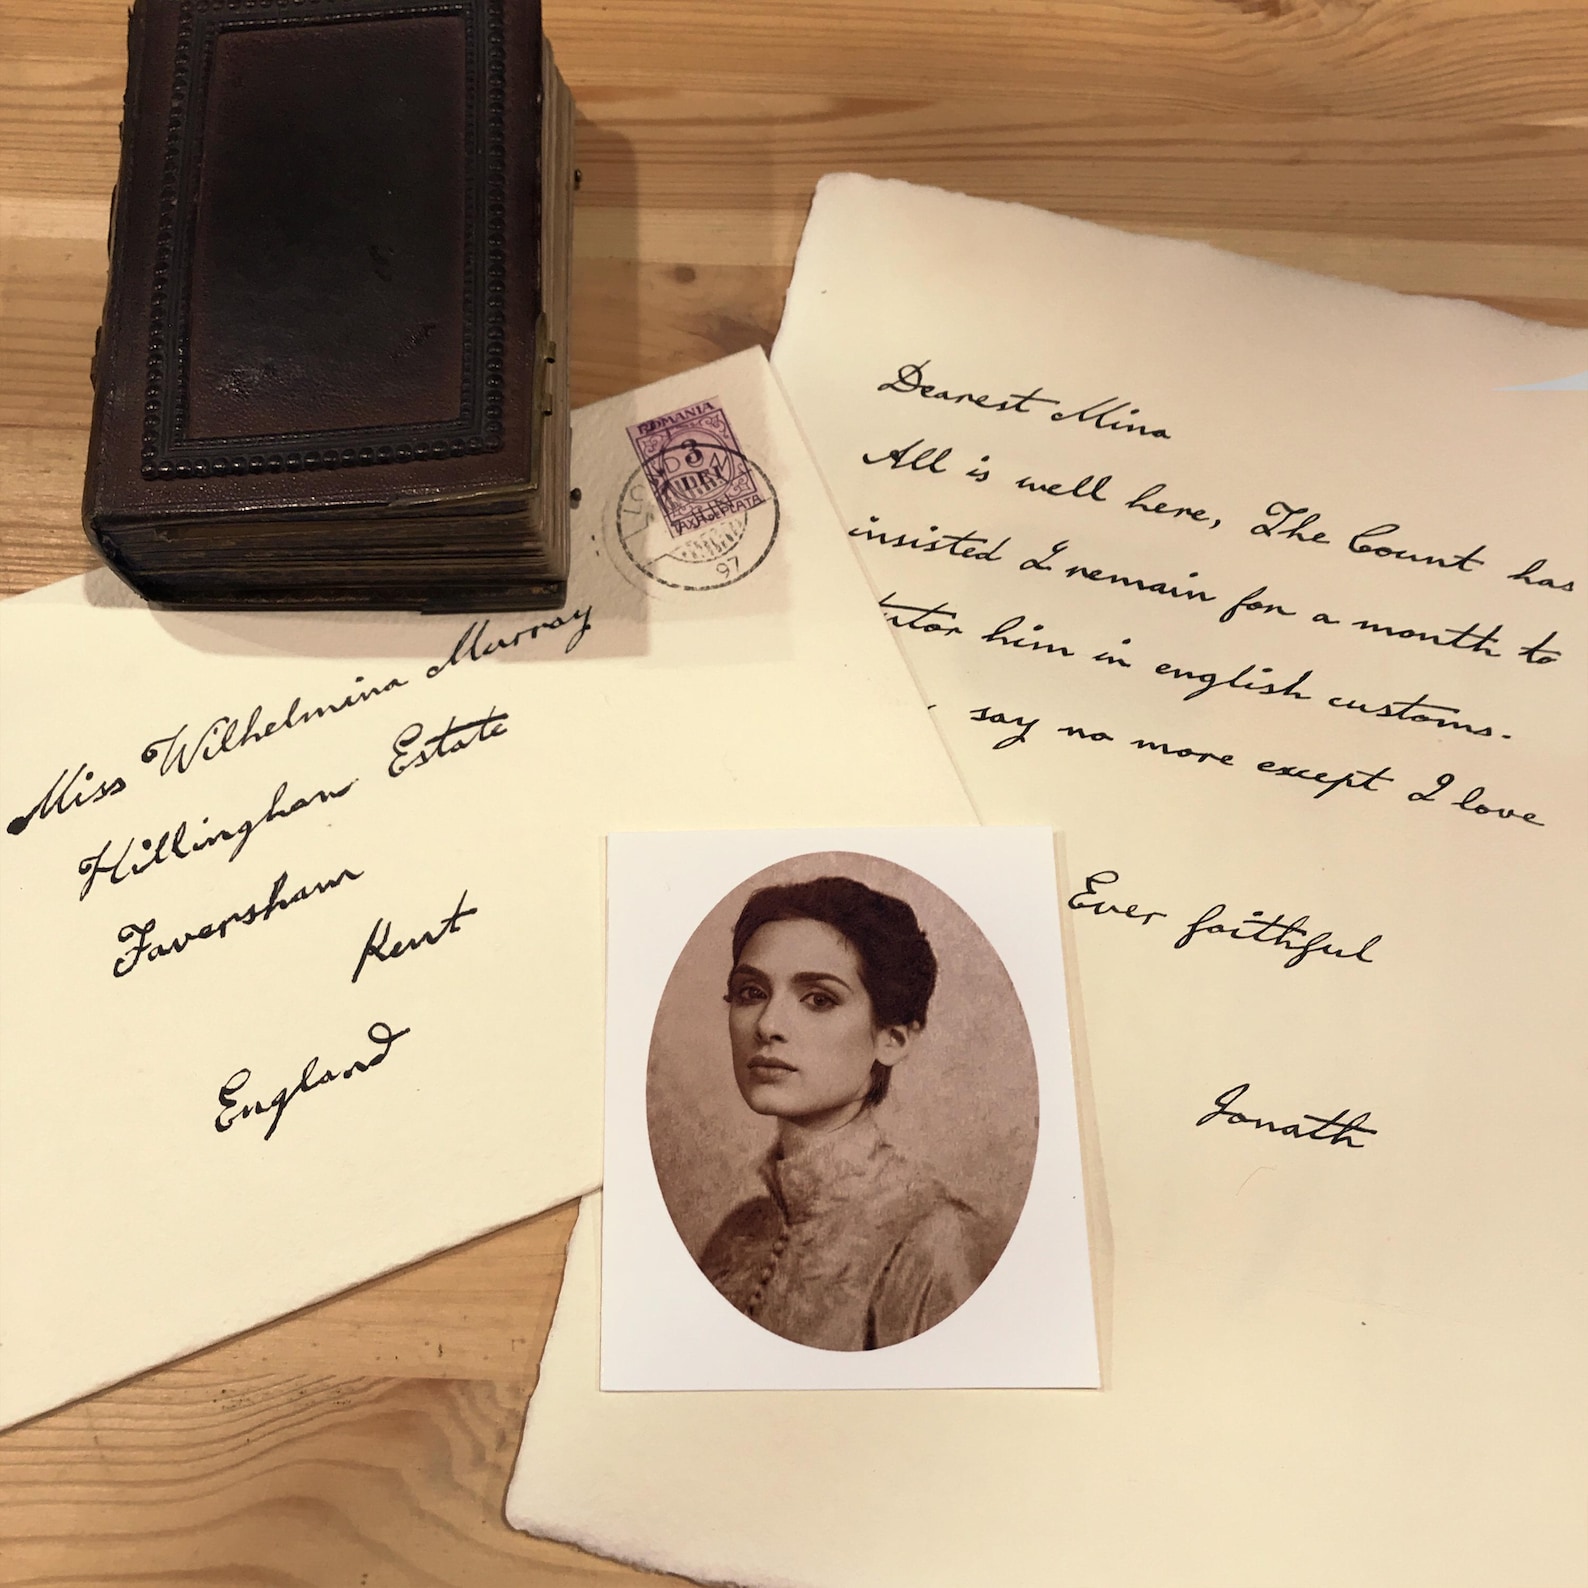 ROMANIA
3
TAXA DE PLATA
97
Miss Wilhelmina Murray
Hillingham Estate
Faversham
Kent
England
Dearest Mina
All is well here, The Count has
insisted I remain for a month to
tutor him in english customs.
say no more except I love
Ever faithful
Jonath